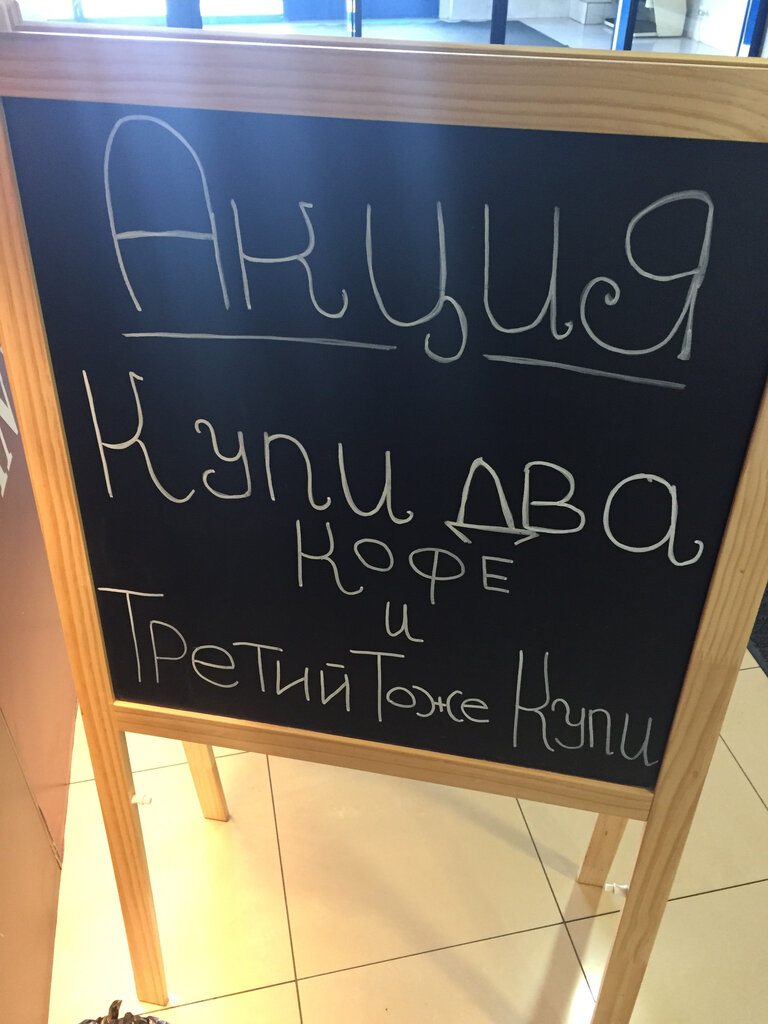 Акция
Купи два
кофе
и
Третий Тоже Купи